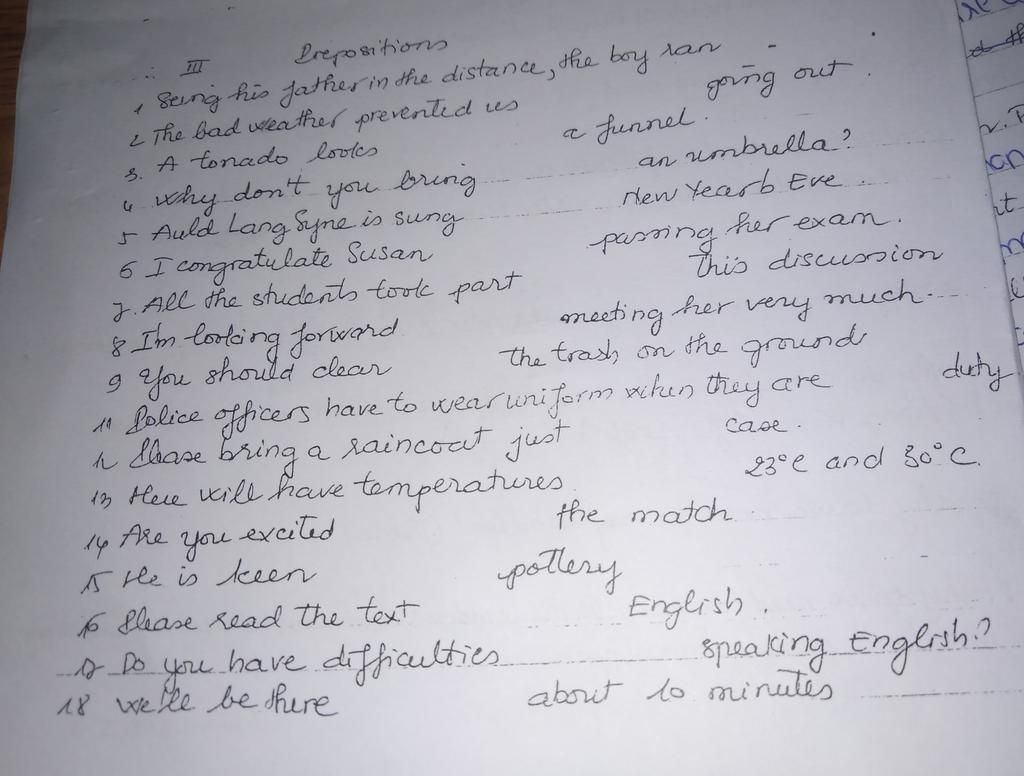 III Prepositions
1, Seing his father in the distance, the boy ran
2 The bad weather prevented us going out.
3. A tonado looks a funnel.
4 why don't you bring an umbrella?
5 Auld Lang Syne is sung New Years Eve.
6 I congratulate Susan passing her exam.
7. All the students took part this discussion
8 I'm looking forward meeting her very much.
9 You should clear the trash on the ground
11 Police officers have to wear uniform when they are duty
12 Please bring a raincoat just case.
13 Here will have temperatures 23°C and 30°C.
14 Are you excited the match
15 He is keen pottery
16 Please read the text English.
17 Do you have difficulties speaking English?
18 we'll be there about 10 minutes